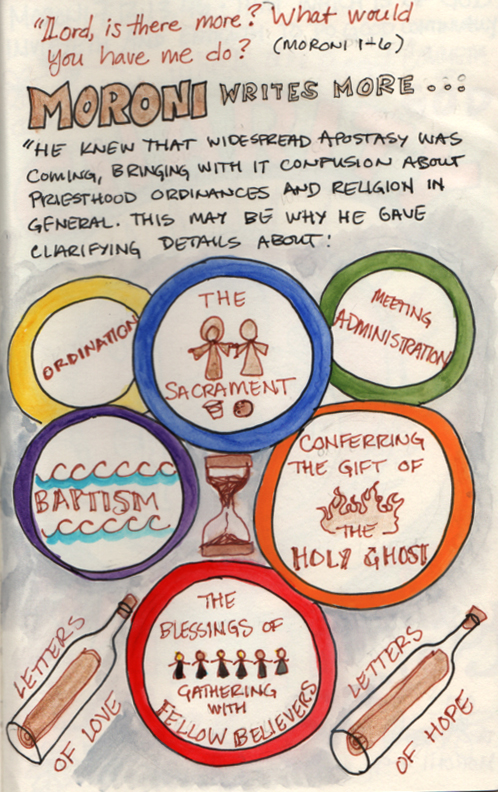 "Lord, is there more? What would
you have me do? (MORONI 1+6)
MORONI WRITES MORE...
"HE KNEW THAT WIDESPREAD APOSTASY WAS
COMING, BRINGING WITH IT CONFUSION ABOUT
PRIESTHOOD ORDINANCES AND RELIGION IN
GENERAL. THIS MAY BE WHY HE GAVE
CLARIFYING DETAILS ABOUT:
ORDINATION
THE
SACRAMENT
MEETING
ADMINISTRATION
BAPTISM
CONFERRING
THE GIFT OF
THE
HOLY GHOST
THE
BLESSINGS OF
GATHERING
WITH
FELLOW BELIEVERS
LETTERS
OF LOVE
LETTERS
OF HOPE